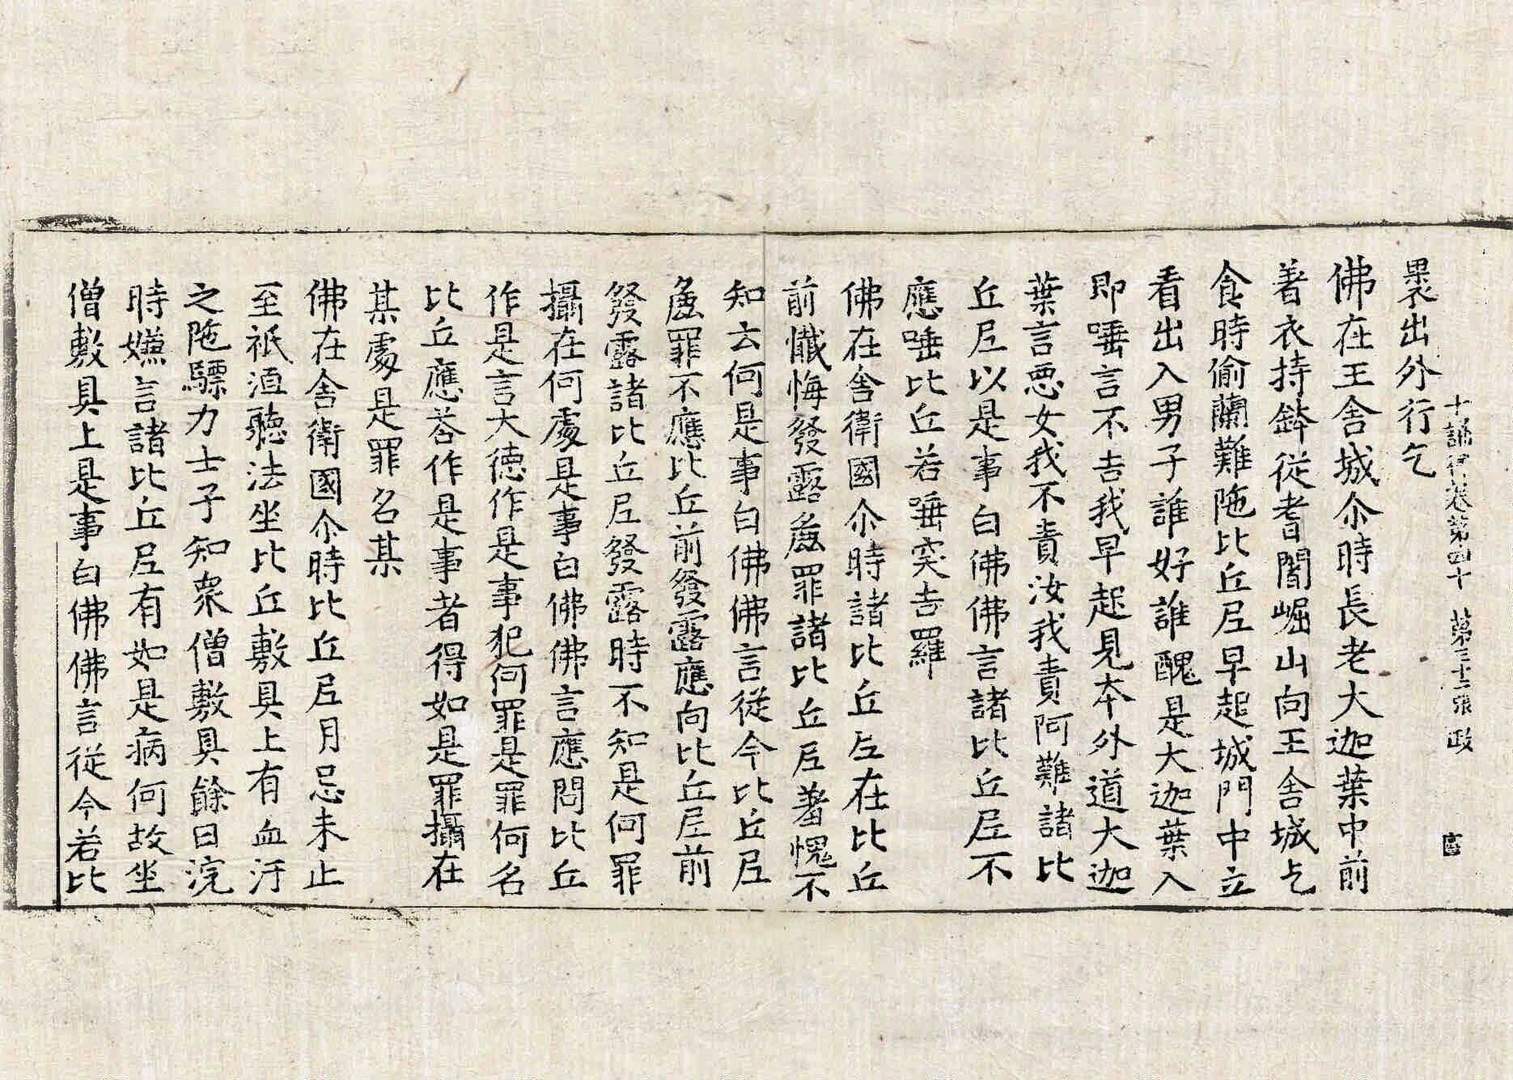 十誦律卷第四十 第三十二張 政
褁出外行乞
佛在王舍城尒時長老大迦葉中前
著衣持鉢從耆闍崛山向王舍城乞
食時偷蘭難陁比丘尼早起城門中立
看出入男子誰好誰醜是大迦葉入
即唾言不吉我早起見本外道大迦
葉言惡女我不責汝我責阿難諸比
丘尼以是事白佛佛言諸比丘尼不
應唾比丘若唾突吉羅
佛在舍衛國尒時諸比丘尼在比丘
前懺悔發露麁罪諸比丘尼羞愧不
知云何是事白佛佛言從今比丘尼
麁罪不應比丘前發露應向比丘尼前
發露諸比丘尼發露時不知是何罪
攝在何處是事白佛佛言應問比丘
作是言大德作是事犯何罪是罪何名
比丘應荅作是事者得如是罪攝在
某處是罪名某
佛在舍衛國尒時比丘尼月忌未止
至祇洹聽法坐比丘敷具上有血汙
之陁驃力士子知衆僧敷具餘日浣
時嫌言諸比丘尼有如是病何故坐
僧敷具上是事白佛佛言從今若比